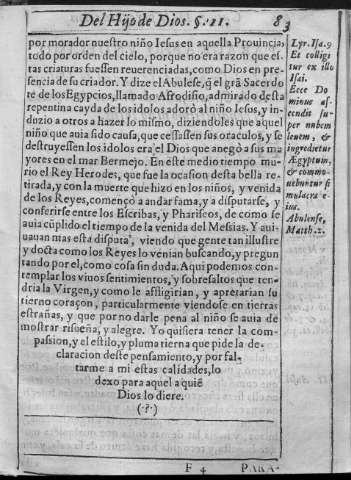 Del Hijo de Dios. §. 11. 83
por morador nuestro niño Iesus en aquella Prouincia,
todo por orden del cielo, porque no era razon que es-
tas criaturas fuessen reuerenciadas, como Dios en pre-
sencia de su criador. Y dize el Abulese, q̃ el grã Sacerdo
te de los Egypcios, llamado Afrodisio, admirado desta
repentina cayda de los idolos adorò al niño Iesus, y in-
duzio a otros a hazer lo mismo, diziendoles que aquel
niño que auia sido causa, que cessassen sus oraculos, y se
destruyessen los idolos era el Dios que anegò a sus ma
yores en el mar Bermejo. En este medio tiempo mu-
rio el Rey Herodes, que fue la ocasion desta bella re-
tirada, y con la muerte que hizo en los niños, y venida
de los Reyes, començò a andar fama, y a disputarse, y
conferirse entre los Escribas, y Phariseos, de como se
auia cũplido el tiempo de la venida del Messias. Y aui-
uauan mas esta disputa, viendo que gente tan illustre
y docta como los Reyes lo venian buscando, y pregun
tando por el, como cosa sin duda. Aqui podemos con-
templar los viuos sentimientos, y sobresaltos que ten-
dria la Virgen, y como le affligirian, y apretarian su
tierno coraçon, particularmente viendose en tierras
estrañas, y que por no darle pena al niño se auia de
mostrar risueña, y alegre. Yo quisiera tener la com-
passion, y el estilo, y pluma tierna que pide la de-
claracion deste pensamiento, y por fal-
tarme a mi estas calidades, lo
dexo para aquel a quiẽ
Dios lo diere.
(·?·)
Lyr. Isa. 9
Et colligi
tur ex illo
Isai.
Ecce Do
minus as-
cendit su-
per nubem
leuem, &
ingredietur
Ægyptum,
& commo-
uebuntur si
mulacra e-
ius.
Abulense,
Matth. 2.
F 4 PARA-